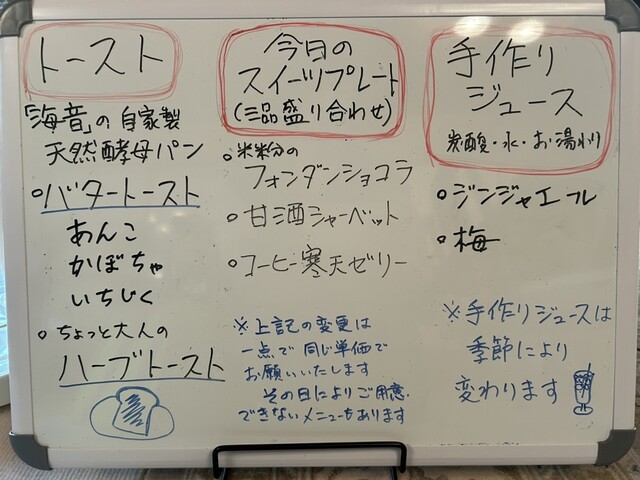 トースト
「海音」の自家製
天然酵母パン
○バタートースト
あんこ
かぼちゃ
いちじく
○ちょっと大人の
ハーブトースト
今日の
スイーツプレート
(三品盛り合わせ)
○米粉の
フォンダンショコラ
○甘酒シャーベット
○コーヒー寒天ゼリー
※上記の変更は
一点で同じ単価で
お願いいたします
その日によりご用意
できないメニューもあります
手作り
ジュース
炭酸・水・お湯わり
○ジンジャエール
○梅
※手作りジュースは
季節により
変わります